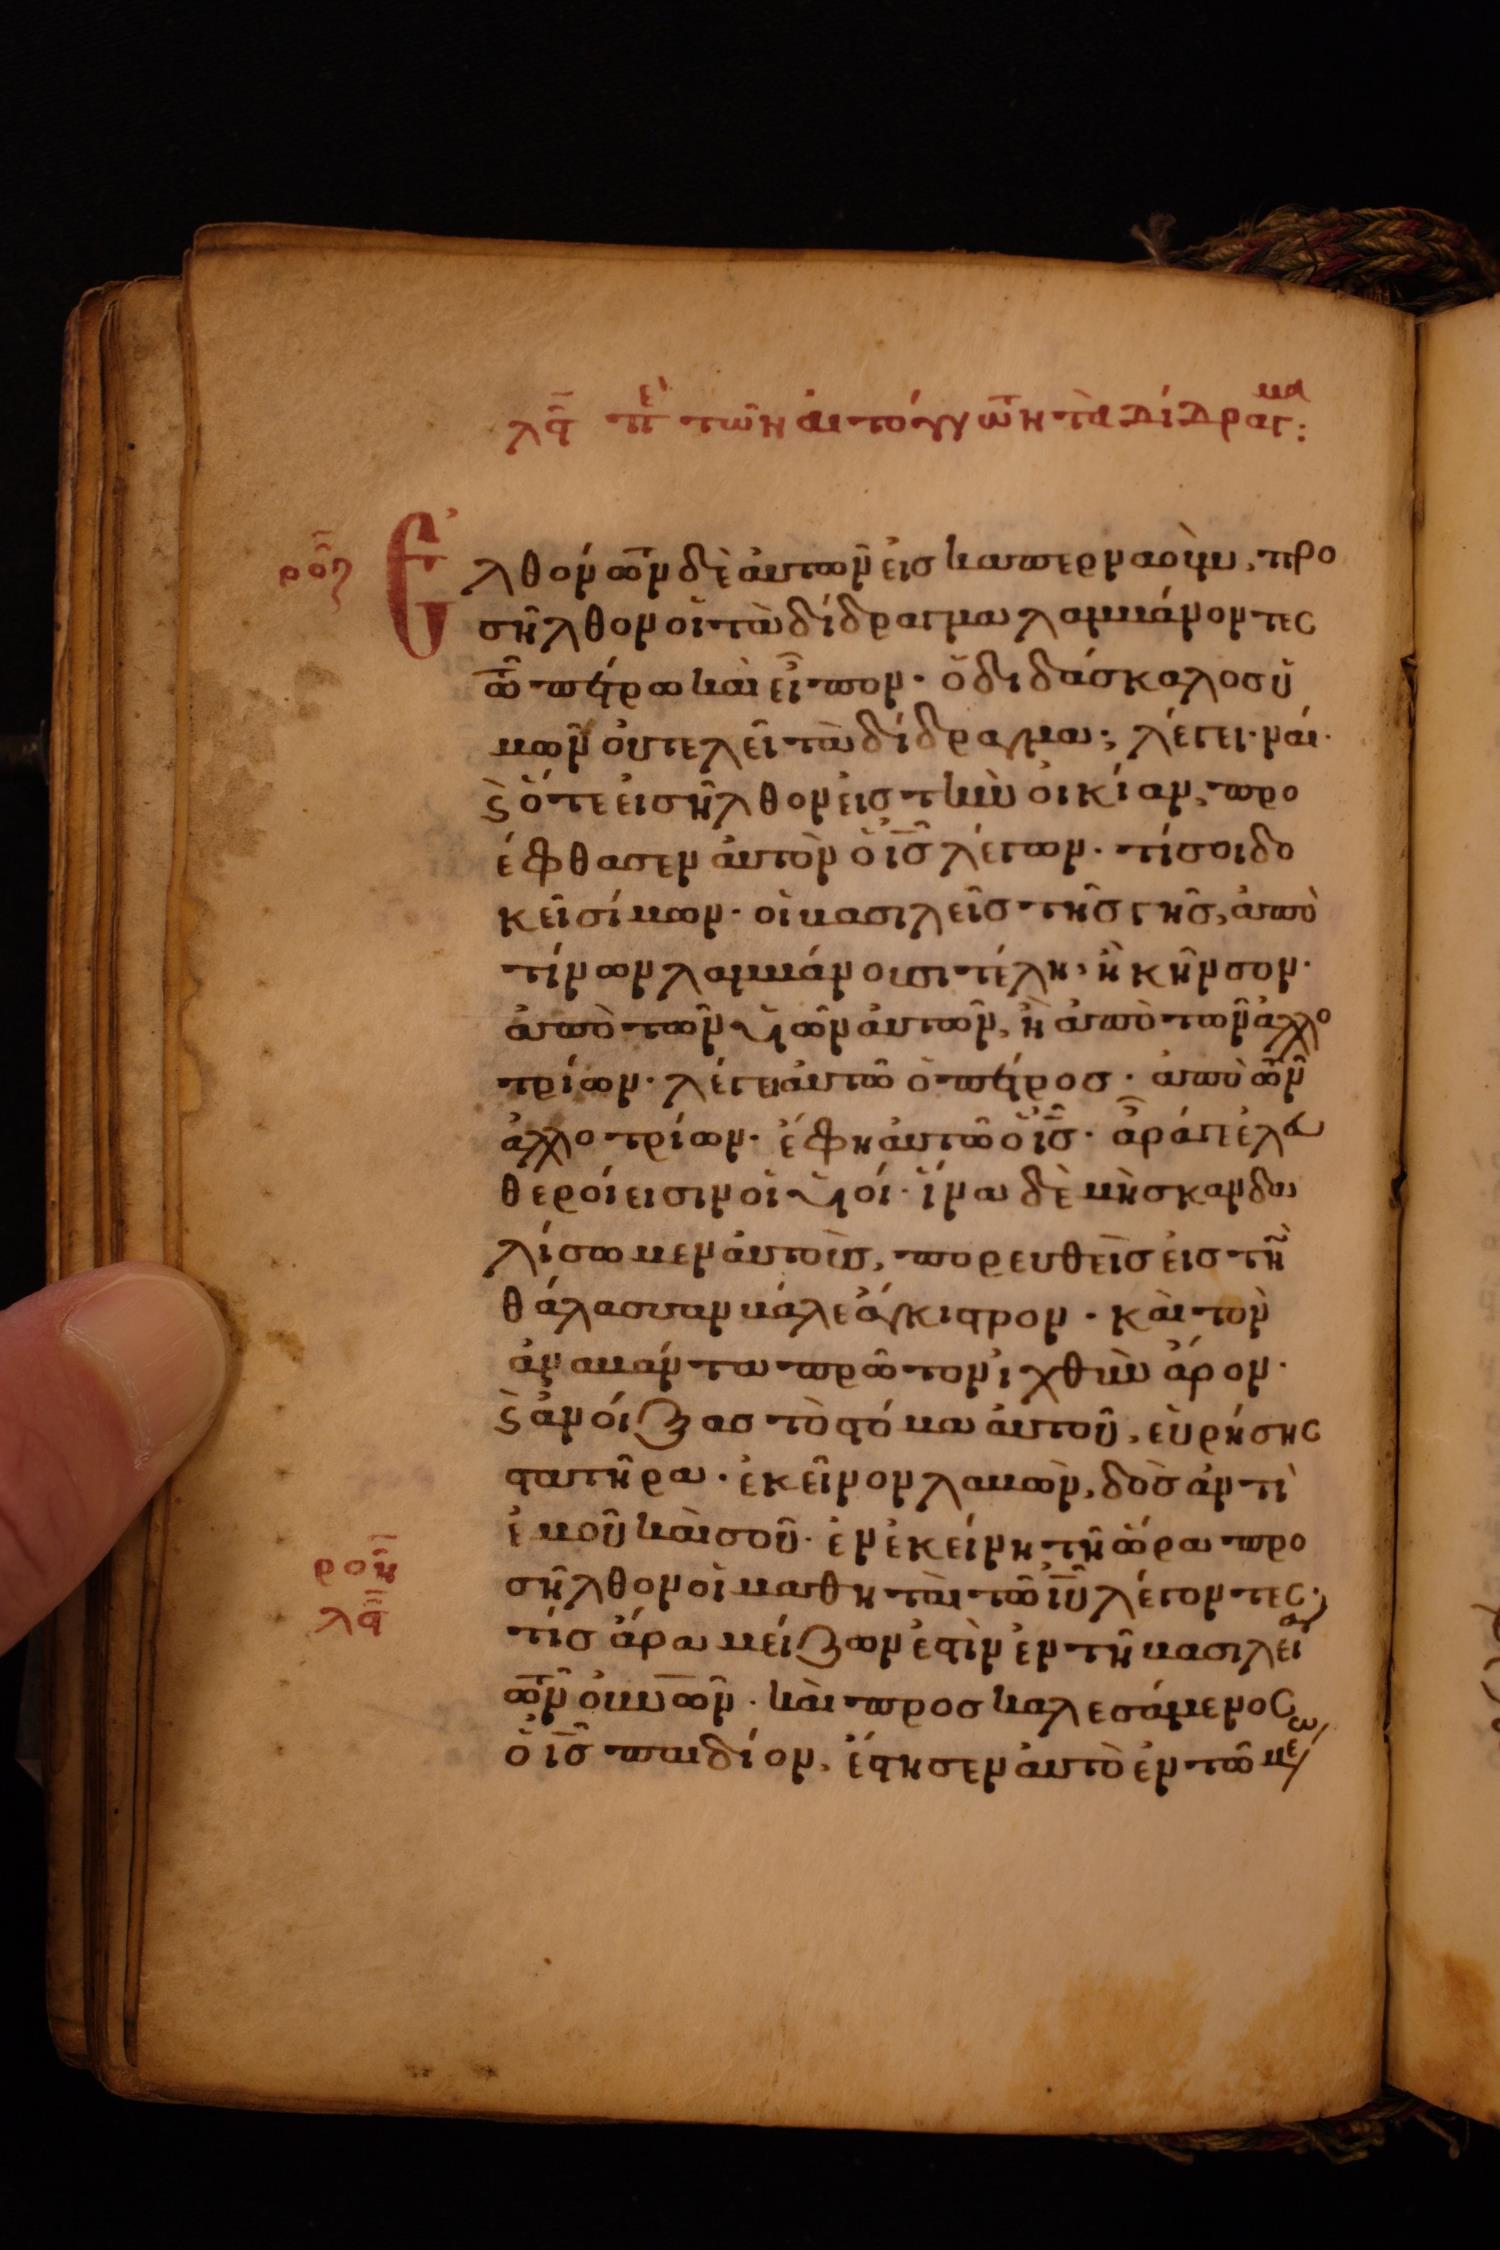 λϛ πε τῶν αἰτούντων τὰ δίδραγμα:
ροζ Ἐλθόντων δὲ ἀυτῶν εἰσ καπερναοὺμ, προ
σῆλθον οἱ τὰ δίδραγμα λαμβάνοντες
τῶ πέτρω καὶ εἶπον· ὁ διδάσκαλοσ ὑ
μῶν ὀυ τελεῖ τὰ δίδραγμα; λέγει· ναί·
ϗ ὅτε εἰσῆλθον εἰσ τὴν οἰκίαν, προ
έφθασεν ἀυτὸν ὁ ισ λέγων· τί σοι δο
κεῖ σίμων· οἱ βασιλεῖσ τῆσ γῆσ, ἀπὸ
τίνων λαμβάνουσι τέλη, ἢ κῆνσον·
ἀπὸ τῶν υἱῶν ἀυτῶν, ἢ ἀπὸ τῶν ἀλλο
τρίων· λέγει ἀυτῶ ὁ πέτροσ· ἀπὸ τῶν
ἀλλοτρίων· ἔφη ἀυτῶ ὁ ισ· ἄρά γε ἐλευ
θεροί εισιν οἱ υἱοί· ἵνα δὲ μὴ σκανδα
λίσωμεν ἀυτοὺσ, πορευθεὶσ εἰσ τὴν
θάλασσαν βάλε ἄγκιστρον· καὶ τὸν
ἀναβάντα πρῶτον ἰχθὺν ἆρον·
ϗ ἀνοίξασ τὸ στόμα ἀυτοῦ, εὑρήσης
στατῆρα· ἐκεῖνον λαβὼν, δὸσ ἀντὶ
ἐμοῦ καὶ σοῦ· ἐν ἐκείνη τῆ ὥρα προ
ροη σῆλθον οἱ μαθηταὶ τῶ ιυ λέγοντες·
λϛ τίσ ἄρα μείζων ἐστὶν ἐν τῆ βασιλεία
τῶν οὐνῶν· καὶ προσκαλεσάμενος
ὁ ισ παιδίον, ἔστησεν ἀυτὸ ἐν τῶ μέσω